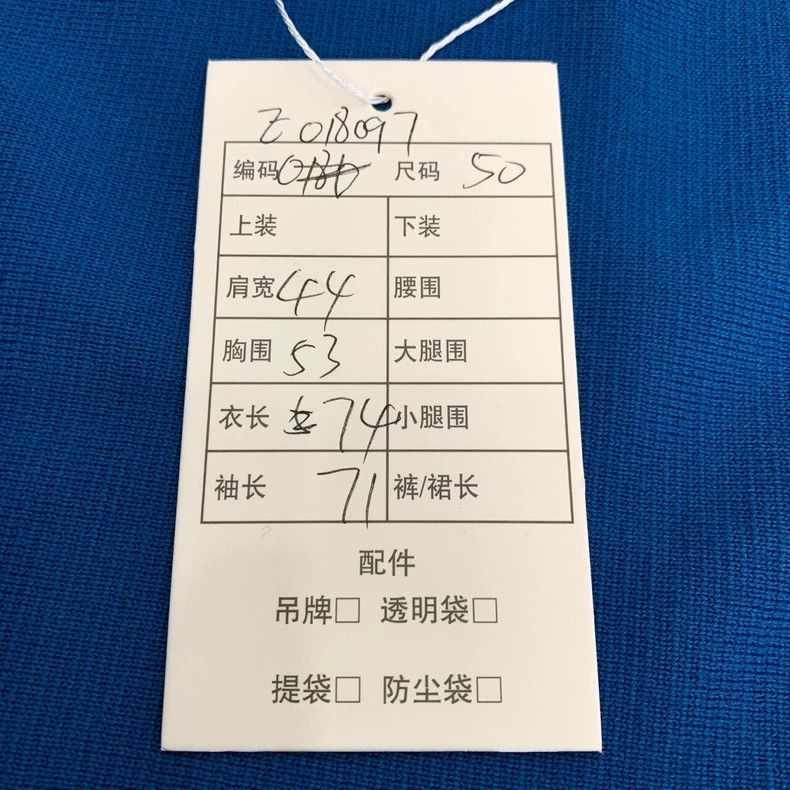 Z018097
编码 尺码 50
上装 下装
肩宽 44 腰围
胸围 53 大腿围
衣长 74 小腿围
袖长 71 裤/裙长
配件
吊牌□ 透明袋□
提袋□ 防尘袋□